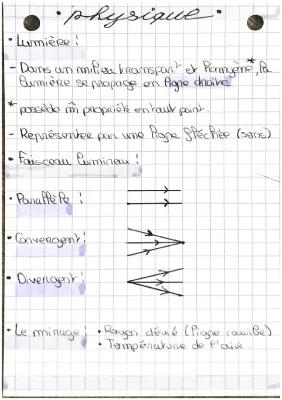 • physique •
• Lumière :
- Dans un milieu transpart et homogène*, la
lumière se propage en ligne droite
* possède m̂ propriété en tout point.
- Représenter par une ligne fléchée (sens)
• Faisceau lumineu :
• Parallèle :
• Convergent :
• Divergent :
• Le mirage : • Rayon dévié (ligne courbe)
• Température de l'air.